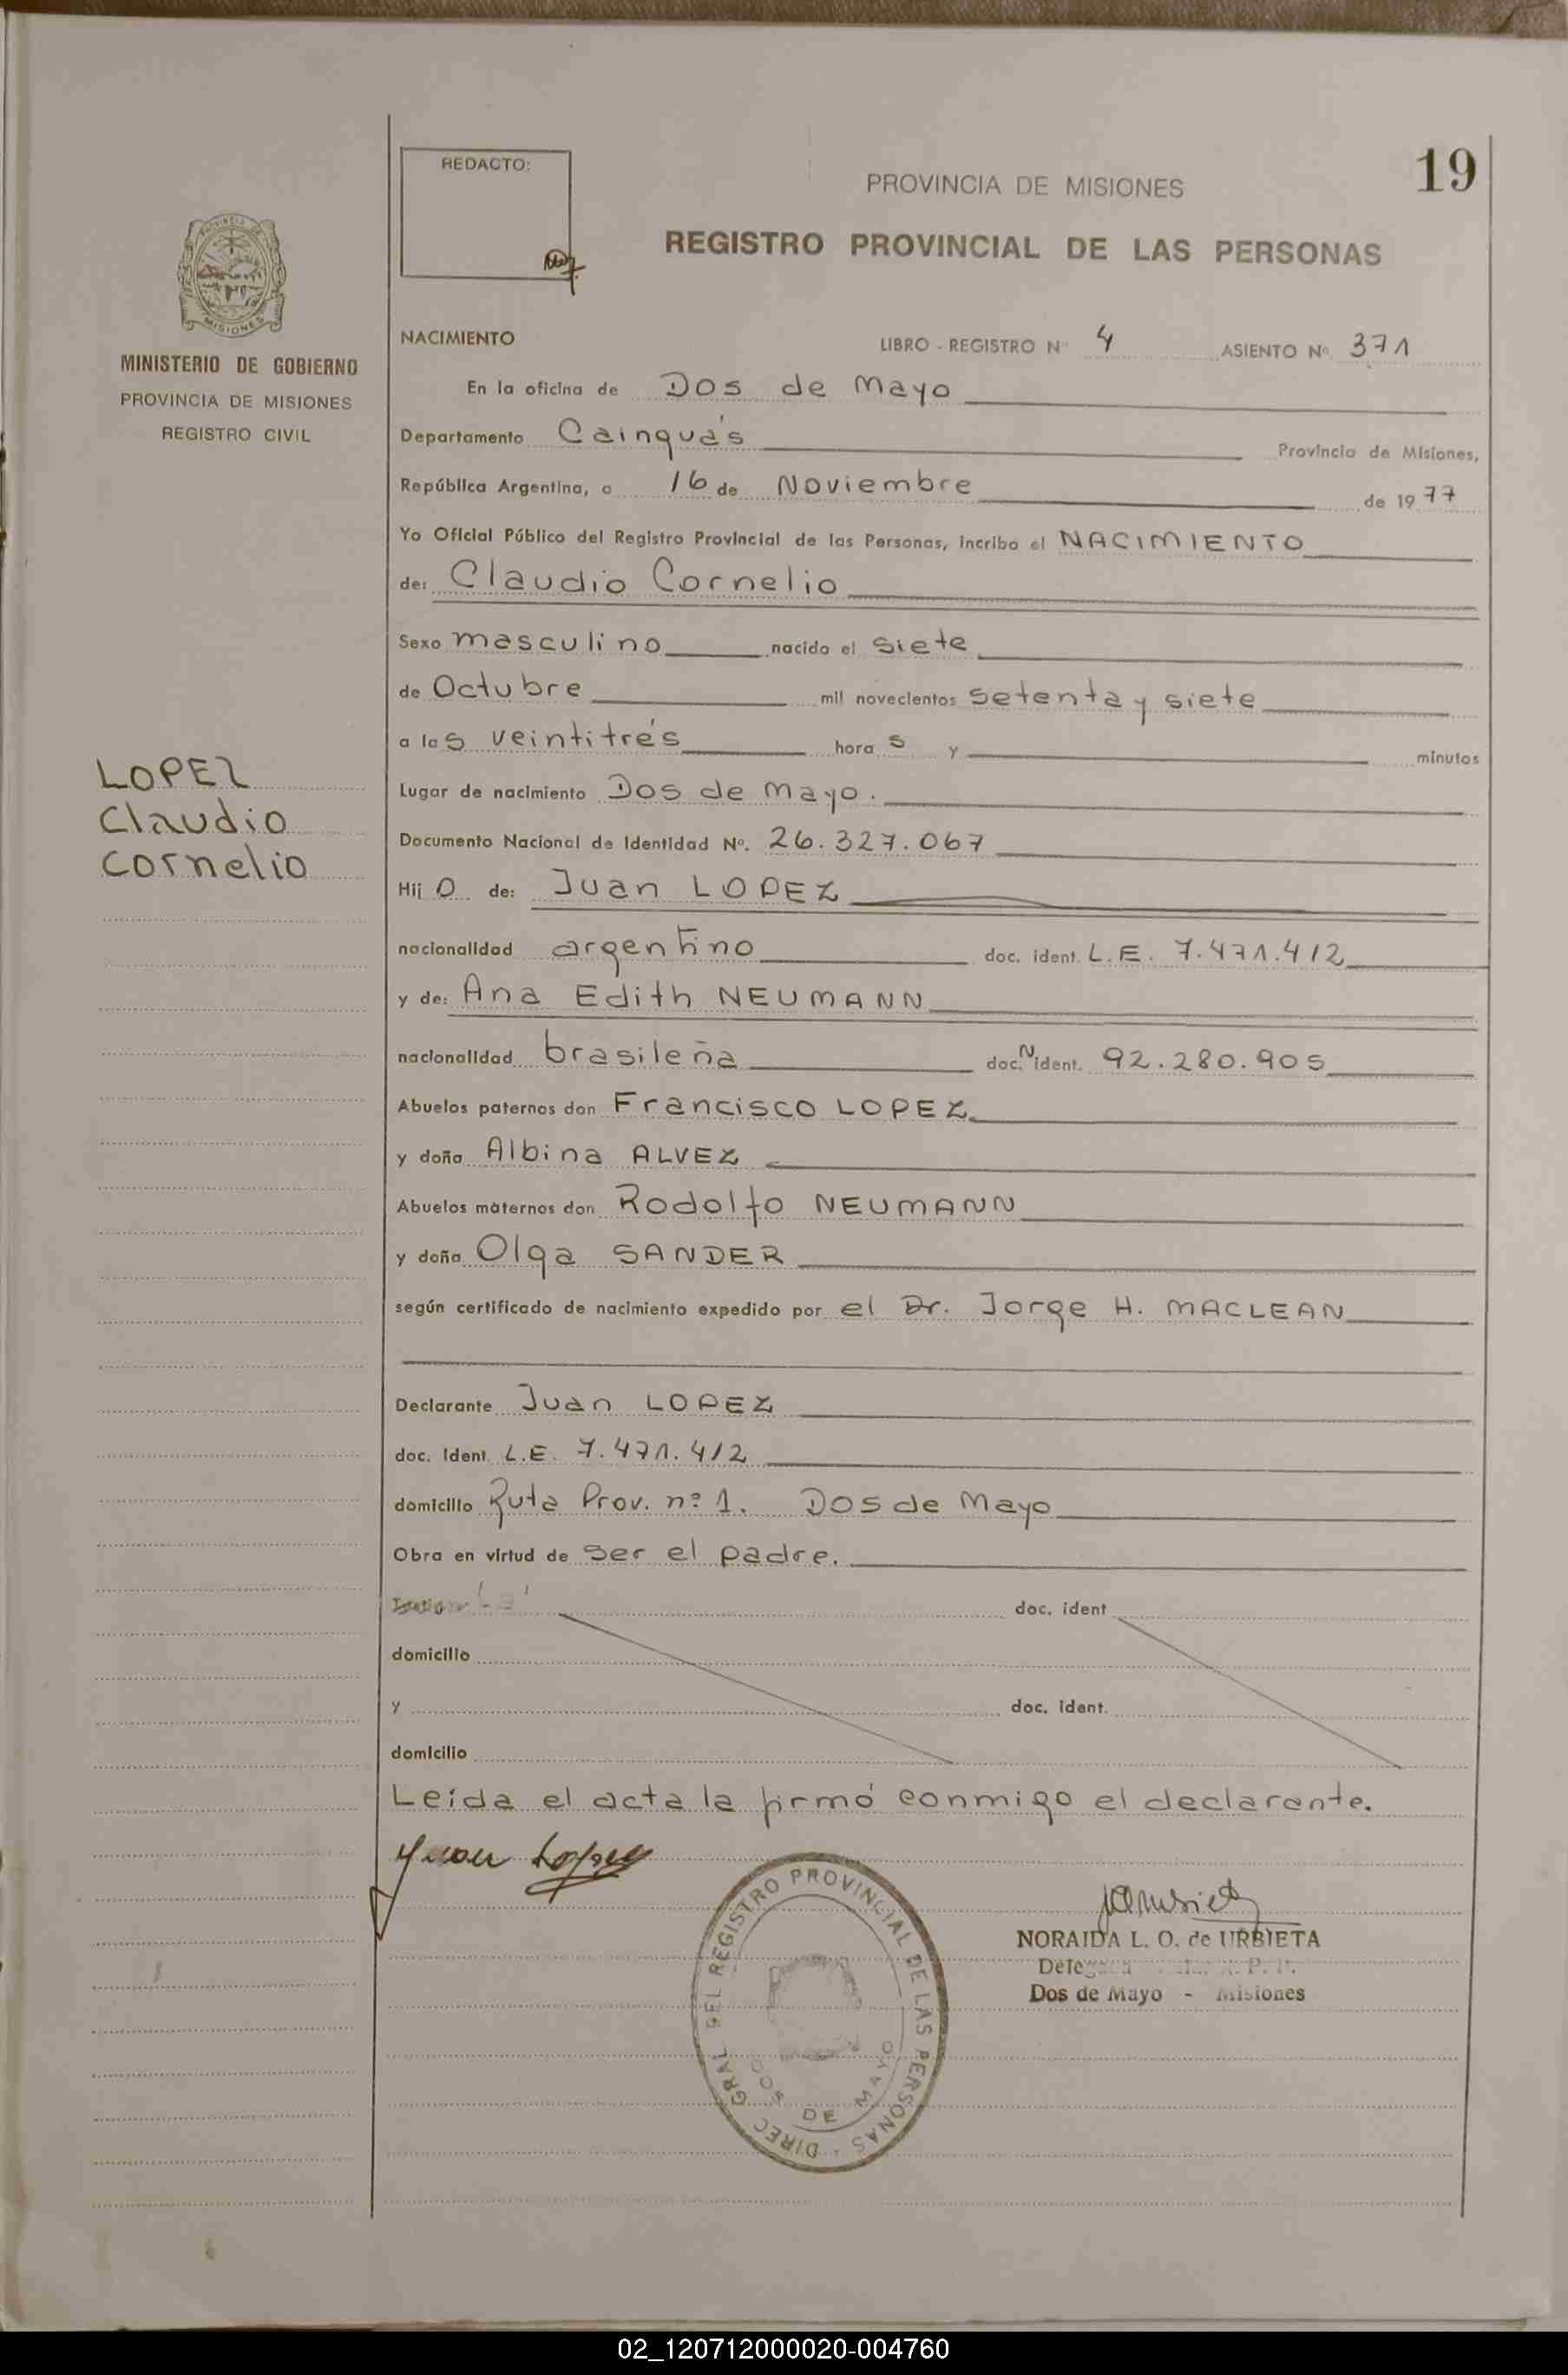 REDACTO:
19
PROVINCIA DE MISIONES
REGISTRO PROVINCIAL DE LAS PERSONAS
PROVINCIA DE
MISIONES
MINISTERIO DE GOBIERNO
PROVINCIA DE MISIONES
REGISTRO CIVIL
NACIMIENTO LIBRO - REGISTRO Nº 4 ASIENTO Nº 371
En la oficina de Dos de Mayo
Departamento Cainguás Provincia de Misiones,
República Argentina, a 16 de Noviembre de 1977
Yo Oficial Público del Registro Provincial de las Personas, incribo el NACIMIENTO
de: Claudio Cornelio
Sexo masculino nacido el siete
de Octubre mil novecientos setenta y siete
a las veintitrés horas y minutos
LOPEZ
Claudio
Cornelio
Lugar de nacimiento Dos de Mayo.
Documento Nacional de Identidad Nº. 26.327.067
Hijo de: Juan LOPEZ
nacionalidad argentino doc. ident. L.E. 7.471.412
y de: Ana Edith NEUMANN
nacionalidad brasileña doc. N. ident. 92.280.905
Abuelos paternos don Francisco LOPEZ
y doña Albina ALVEZ
Abuelos maternos don Rodolfo NEUMANN
y doña Olga SANDER
según certificado de nacimiento expedido por el Dr. Jorge H. MACLEAN
Declarante Juan LOPEZ
doc. Ident. L.E. 7.471.412
domicilio Ruta Prov. nº 1. Dos de Mayo
Obra en virtud de ser el padre.
doc. ident
domicilio
y doc. Ident.
domicilio
Leída el acta la firmó conmigo el declarante.
Juan Lopez
DIREC. GRAL DEL REGISTRO PROVINCIAL DE LAS PERSONAS
DOS DE MAYO
NORAIDA L. O. de URBIETA
Dos de Mayo - Misiones
02_120712000020-004760